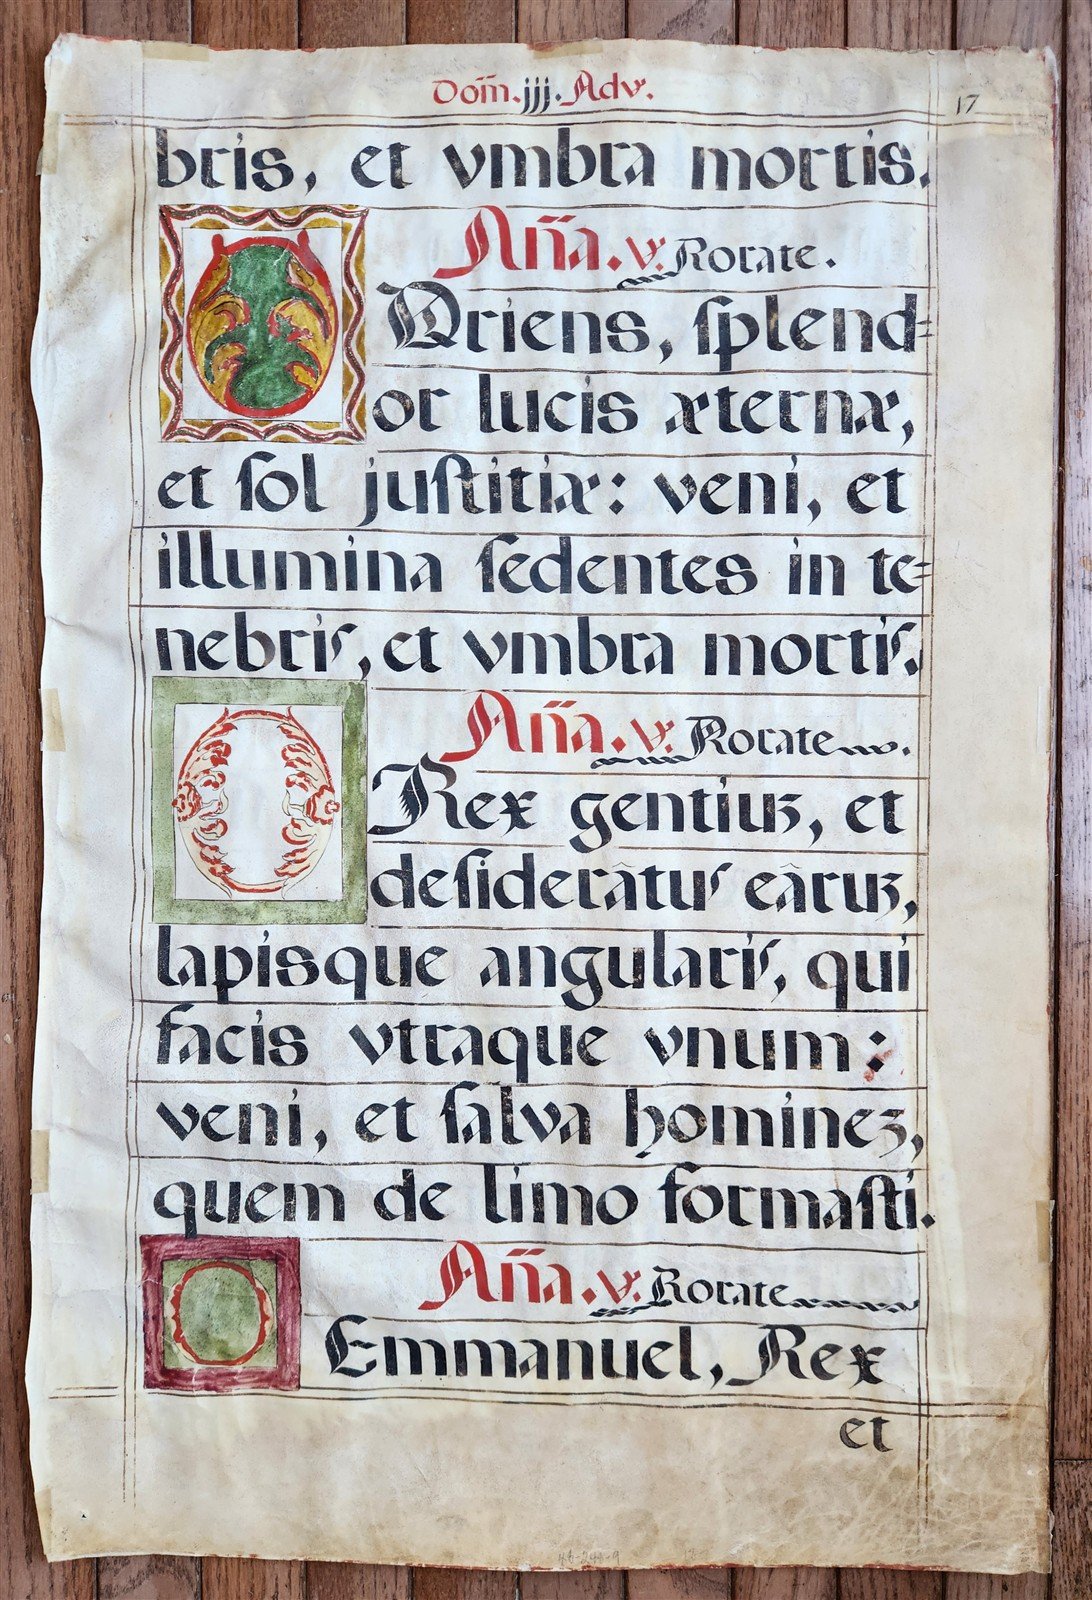 Dom̃. jjj. Adv. 17
bris, et vmbra mortis.
Añã. ℣. Rorate.
O Oriens, ſplend=
or lucis æternæ,
et ſol juſtitiæ: veni, et
illumina ſedentes in te=
nebris, et vmbra mortis.
Añã. ℣. Rorate.
O Rex gentiuʒ, et
deſiderâtus eâruʒ,
lapisque angularis, qui
facis vtraque vnum:
veni, et ſalva homineʒ,
quem de limo formaſti.
Añã. ℣. Rorate
O Emmanuel, Rex
et